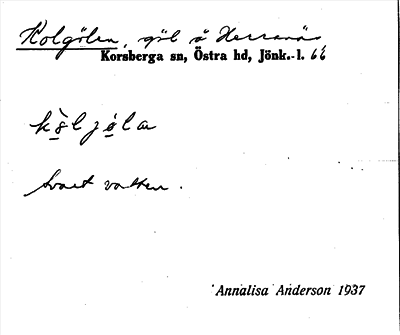 Kolgölen, göl å Herranäs
Korsberga sn, Östra hd, Jönk.-l. 66
svart vatten.
Annalisa Anderson 1937